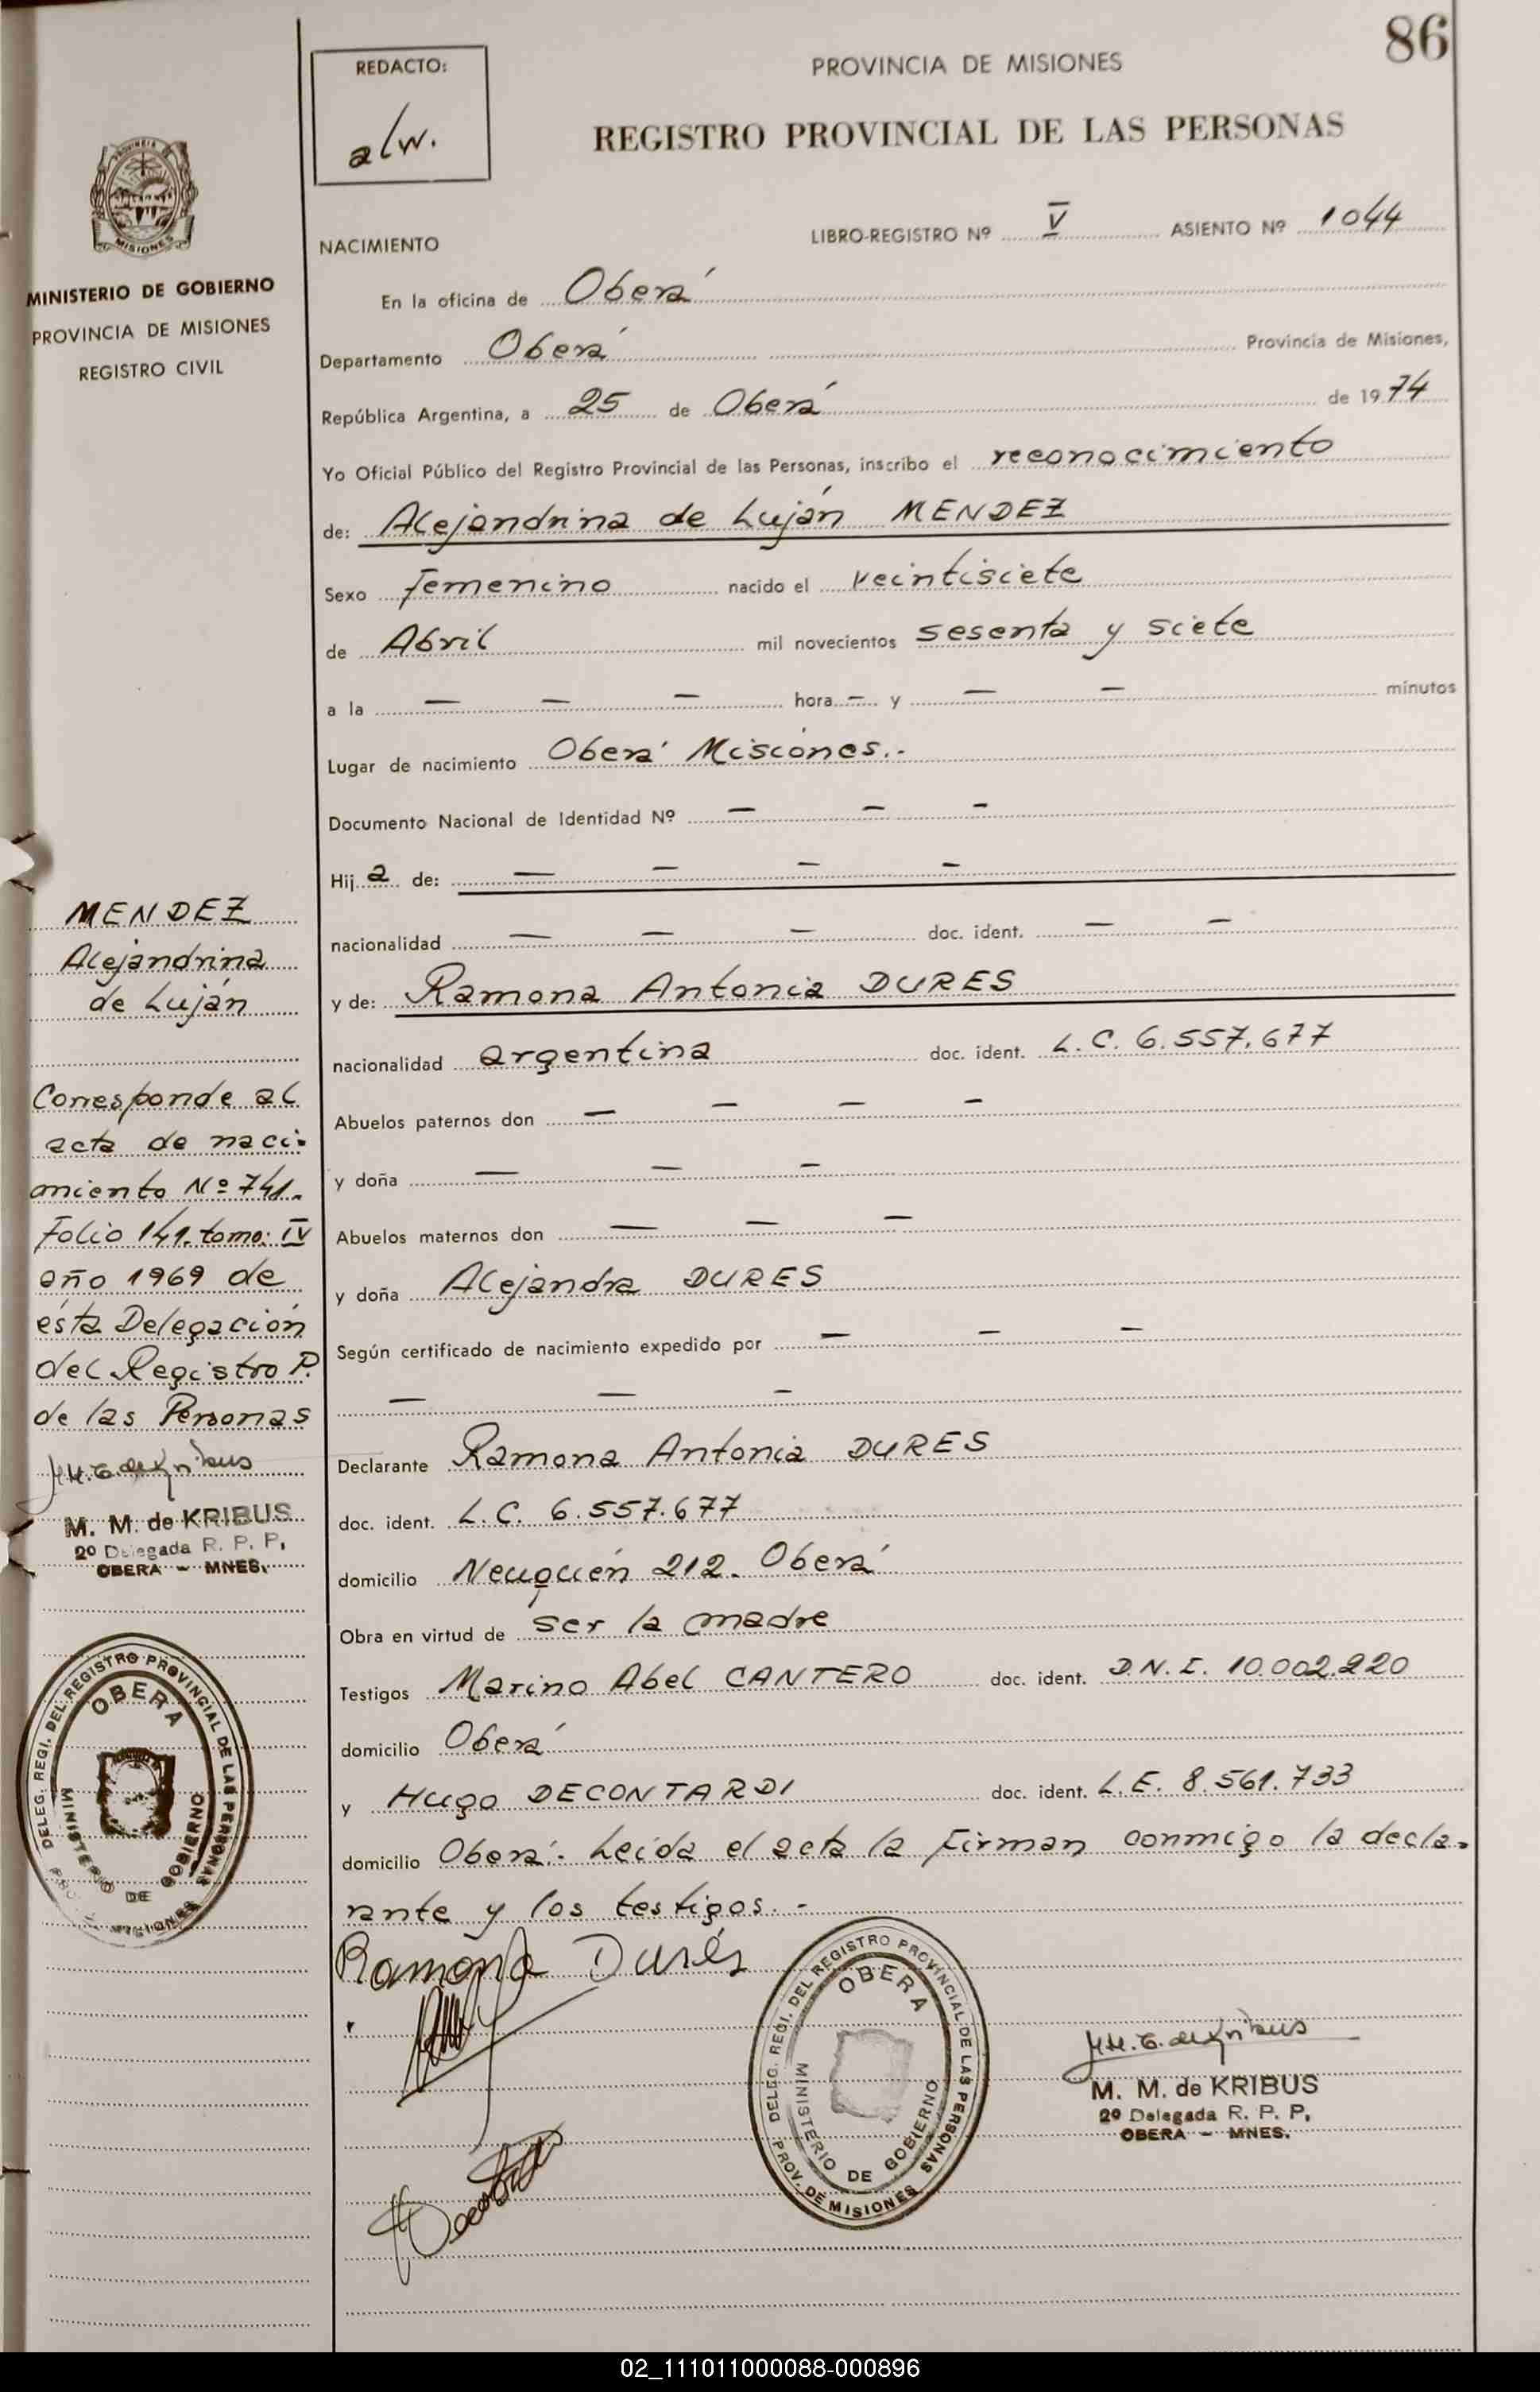 86
REDACTO:
a/w.
PROVINCIA DE MISIONES
REGISTRO PROVINCIAL DE LAS PERSONAS
PROVINCIA DE
MISIONES
MINISTERIO DE GOBIERNO
PROVINCIA DE MISIONES
REGISTRO CIVIL
NACIMIENTO
LIBRO-REGISTRO Nº V ASIENTO Nº 1044
En la oficina de Oberá
Departamento Oberá Provincia de Misiones,
República Argentina, a 25 de Oberá de 1974
Yo Oficial Público del Registro Provincial de las Personas, inscribo el reconocimiento
de: Alejandrina de Luján MENDEZ
Sexo Femenino nacido el veintisiete
de Abril mil novecientos sesenta y siete
a la — — — hora — y — — minutos
Lugar de nacimiento Oberá Misiones.-
Documento Nacional de Identidad Nº — — —
Hija de: — — — —
nacionalidad — — — doc. ident. — —
y de: Ramona Antonia DURES
nacionalidad argentina doc. ident. L.C. 6.557.677
Abuelos paternos don — — — —
y doña — — —
Abuelos maternos don — — —
y doña Alejandra DURES
Según certificado de nacimiento expedido por — — —
— — —
Declarante Ramona Antonia DURES
doc. ident. L.C. 6.557.677
domicilio Neuquén 212. Oberá
Obra en virtud de ser la madre
Testigos Marino Abel CANTERO doc. ident. D.N.I. 10.002.220
domicilio Oberá
y Hugo DECONTARDI doc. ident. L.E. 8.561.733
domicilio Oberá. Leída el acta la firman conmigo la decla-
rante y los testigos.-
Ramona Durés
MENDEZ
Alejandrina
de Luján
Corresponde al
acta de naci-
miento Nº 741.
Folio 141. tomo: IV
año 1969 de
ésta Delegación
del Registro P.
de las Personas
M. M. de KRIBUS
2º Delegada R. P. P.
OBERA - MNES.
DELEG. REGI. DEL REGISTRO PROVINCIAL DE LAS PERSONAS
OBERA
MINISTERIO DE GOBIERNO
MISIONES
DELEG. REGI. DEL REGISTRO PROVINCIAL DE LAS PERSONAS
OBERA
MINISTERIO DE GOBIERNO
PROV. DE MISIONES
M. M. de KRIBUS
2º Delegada R. P. P.
OBERA - MNES.
02_111011000088-000896